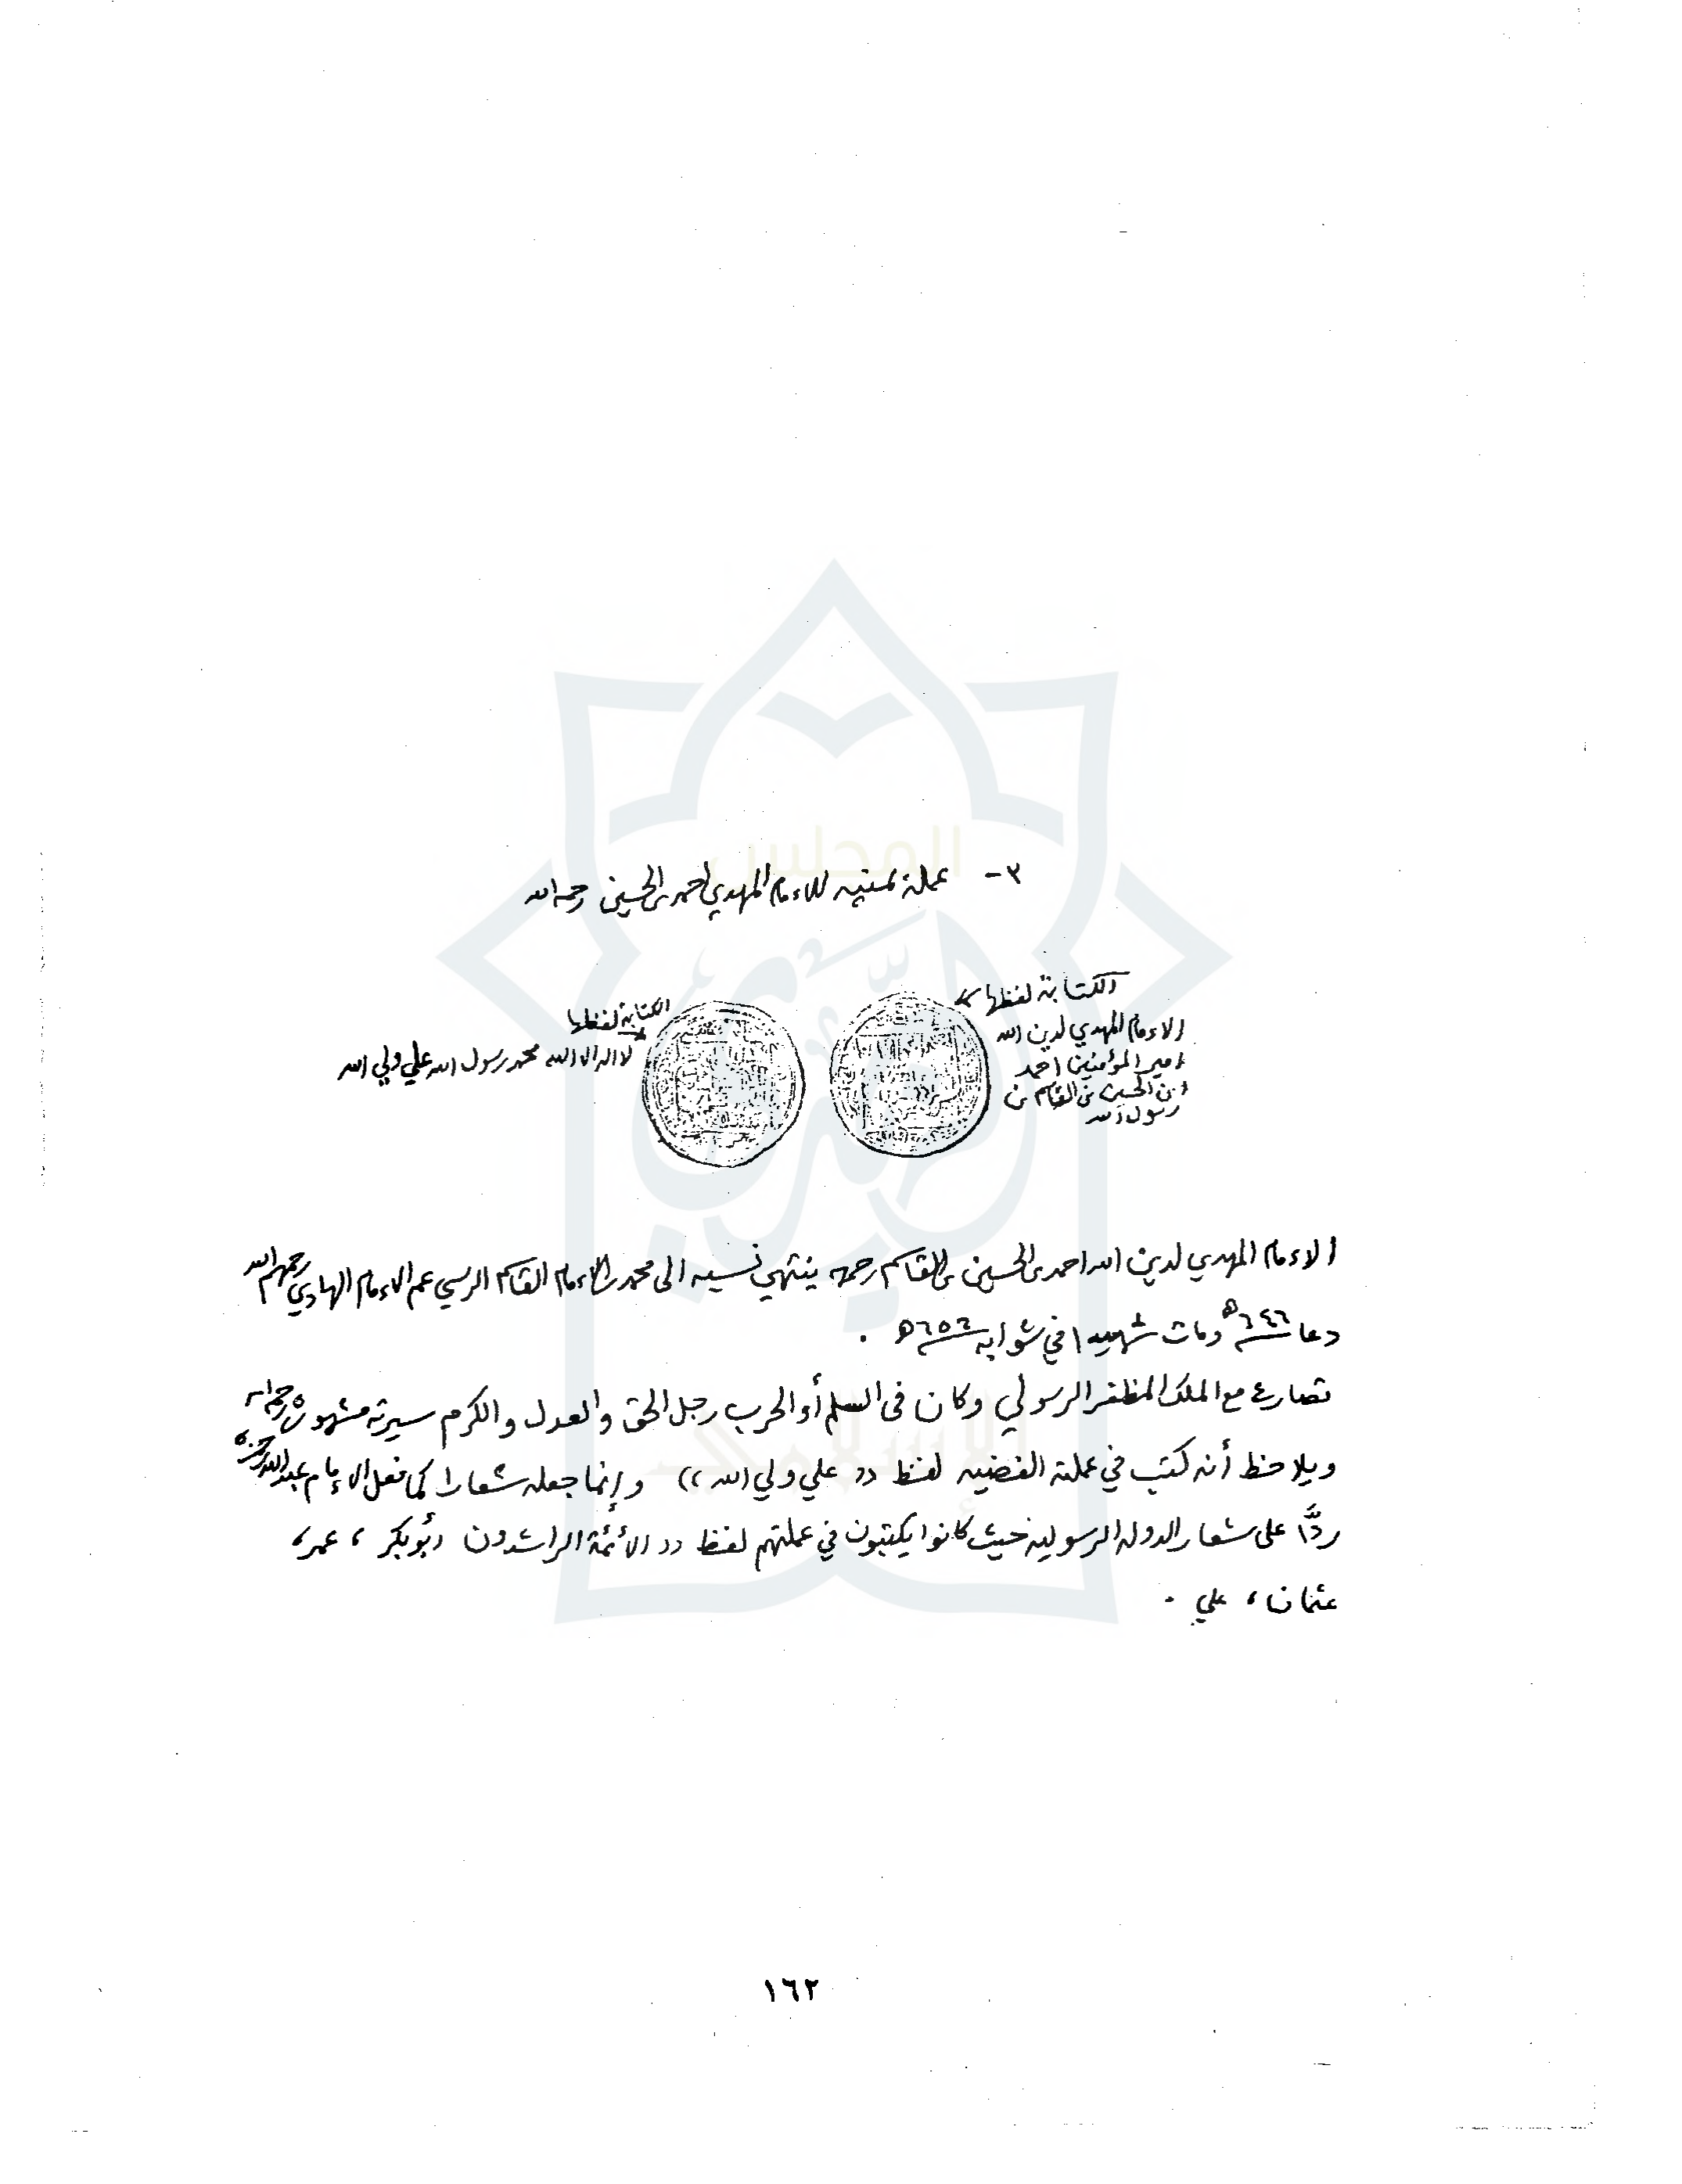 ٣- عملة يمنيه للامام المهدي احمد بن الحسين رحمه الله
الكتابة لفظها
الامام المهدي لدين الله
امير المؤمنين احمد
ابن الحسين بن القاسم بن
رسول الله
الكتابة لفظها
لا اله الا الله محمد رسول الله علي ولي الله
الامام المهدي لدين الله احمد بن الحسين بن القاسم رحمه ينتهي نسبه الى محمد بن الامام القاسم الرسي عم الامام الهادي رحمهم الله
دعا ٦٤٦ ه ومات شهيدا في شوابه ٦٥٦ ه .
تصارع مع الملك المظفر الرسولي وكان في السلم أو الحرب رجل الحق والعدل والكرم سيرته مشهورة رحمه الله
ويلاحظ أنه كتب في عملته الفضيه لفظ (( علي ولي الله )) وإنما جعله شعارا كما فعل الإمام عبدالله بن حمزه
ردًّا على شعار الدوله الرسوليه حيث كانوا يكتبون في عملتهم لفظ (( الأئمة الراشدون ، أبوبكر ، عمر ،
عثمان ، علي .
المجلس
الزيدي
الإسلامي
١٦٢